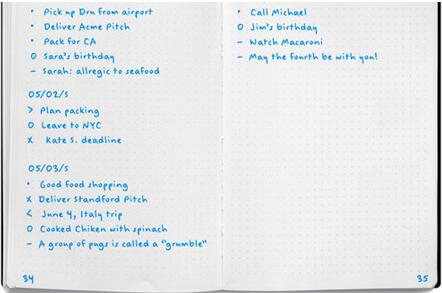 • Pick up Dru from airport
• Deliver Acme Pitch
• Pack for CA
O Sara's birthday
– Sarah: allregic to seafood
05/02/S
> Plan packing
O Leave to NYC
x Kate S. deadline
05/03/S
• Good food shopping
x Deliver Standford Pitch
< June 4, Italy trip
O Cooked Chiken with spinach
– A group of pugs is called a "grumble"
34
• Call Michael
O Jim's birthday
– Watch Macaroni
– May the fourth be with you!
35